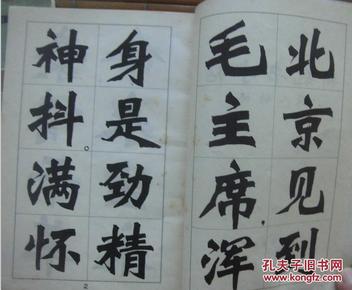 北京见到
毛主席，浑
身是劲精
神抖。满怀
2
孔夫子旧书网
KONGFZ.COM